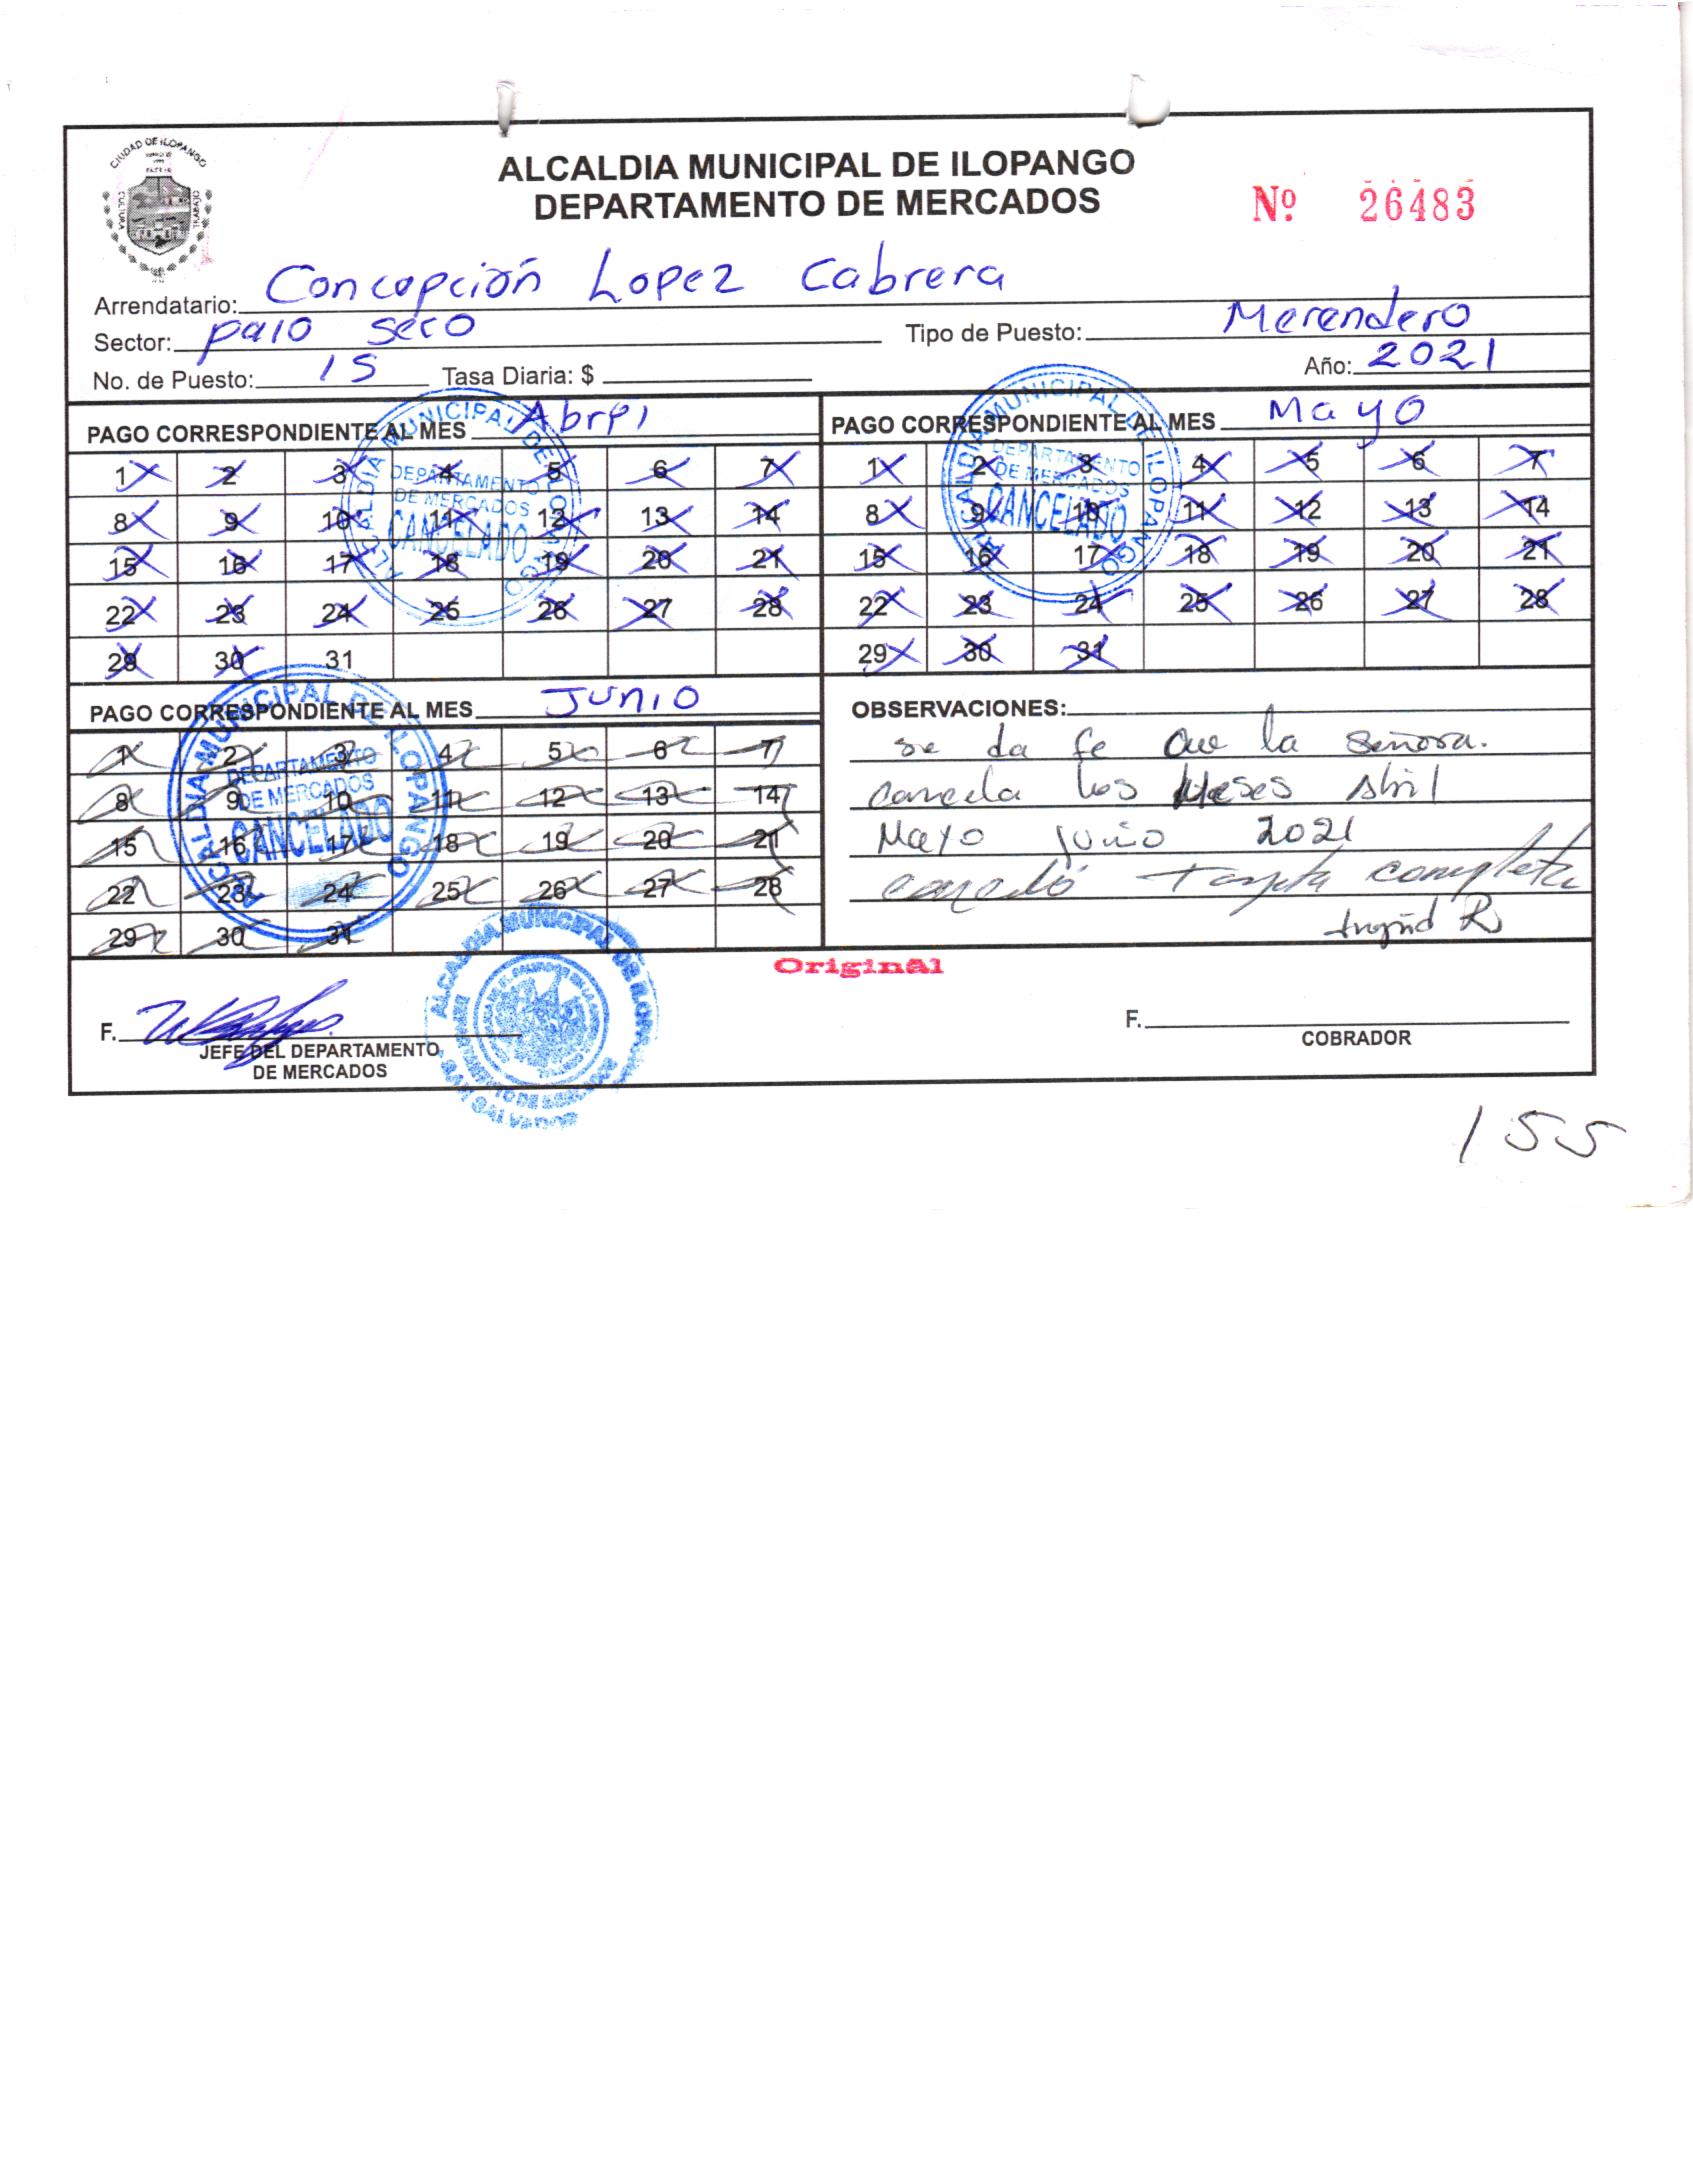 CIUDAD DE ILOPANGO
CULTURA
TRABAJO
ALCALDIA MUNICIPAL DE ILOPANGO
DEPARTAMENTO DE MERCADOS
Nº 26483
Arrendatario: Concepción Lopez Cabrera
Sector: palo seco Tipo de Puesto: Merendero
No. de Puesto: 15 Tasa Diaria: $ Año: 2021
PAGO CORRESPONDIENTE AL MES Abrpi
1 2 3 4 5 6 7
8 9 10 11 12 13 14
15 16 17 18 19 20 21
22 23 24 25 26 27 28
29 30 31
ALCALDIA MUNICIPAL DE ILOPANGO
DEPARTAMENTO
DE MERCADOS
CANCELADO
PAGO CORRESPONDIENTE AL MES Mayo
1 2 3 4 5 6 7
8 9 10 11 12 13 14
15 16 17 18 19 20 21
22 23 24 25 26 27 28
29 30 31
ALCALDIA MUNICIPAL DE ILOPANGO
DEPARTAMENTO
DE MERCADOS
CANCELADO
PAGO CORRESPONDIENTE AL MES Junio
1 2 3 4 5 6 7
8 9 10 11 12 13 14
15 16 17 18 19 20 21
22 23 24 25 26 27 28
29 30 31
ALCALDIA MUNICIPAL DE ILOPANGO
DEPARTAMENTO
DE MERCADOS
CANCELADO
OBSERVACIONES:
se da fe que la señora.
cancela los Meses Abril
Mayo junio 2021
canceló tarjeta completa
Ingrid R
Original
F.
JEFE DEL DEPARTAMENTO
DE MERCADOS
ALCALDIA MUNICIPAL DE ILOPANGO
SAN SALVADOR
F.
COBRADOR
155